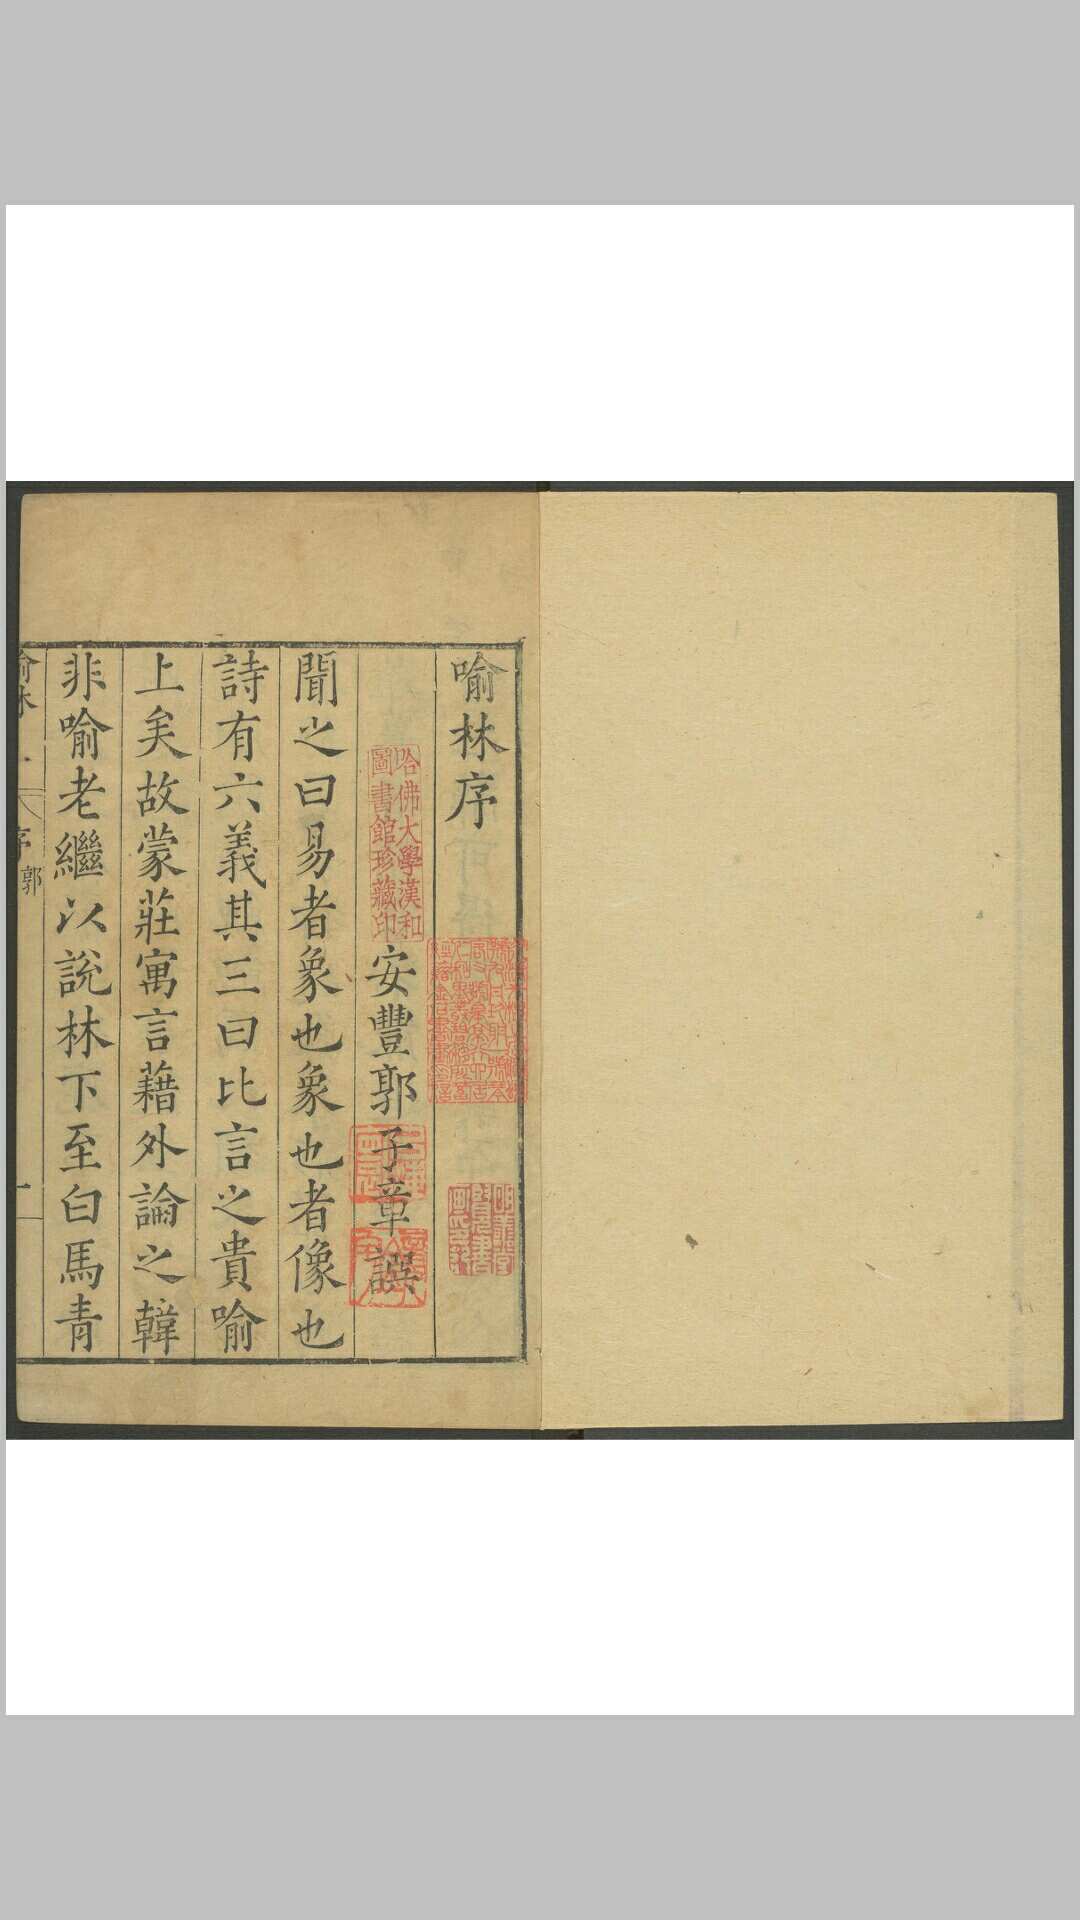 喻林序
安豐郭子章譔
聞之曰易者象也象也者像也
詩有六義其三曰比言之貴喻
上矣故蒙莊寓言藉外論之韓
非喻老繼以說林下至白馬青
喻林
序
郭
一
哈佛大學漢和
圖書館珍藏印